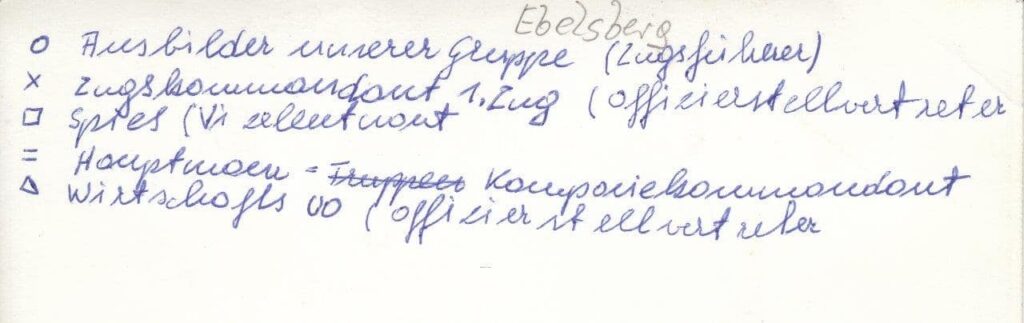 Ebelsberg
o Ausbilder unserer Gruppe (Zugsführer)
x Zugskommandant 1. Zug (Offizierstellvertreter
□ Spies (Vizeleutnant
= Hauptmann - Truppen Kompaniekommandant
△ Wirtschafts UO (Offizierstellvertreter